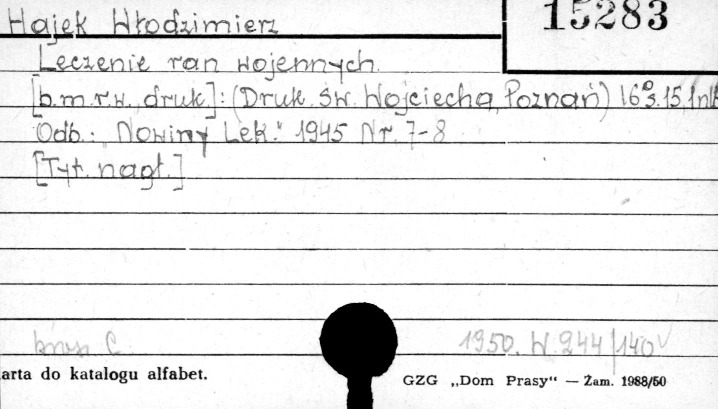 15283
Hajek Włodzimierz
Leczenie ran wojennych.
[b.m.r.w. druk]: (Druk. św. Wojciecha, Poznań) 16° s. 15.1nlb
Odb.: "Nowiny Lek." 1945 Nr. 7-8
[Tyt. nagł.]
brosz C. 1950. W. 244/140
arta do katalogu alfabet.
GZG „Dom Prasy" — Żam. 1988/50